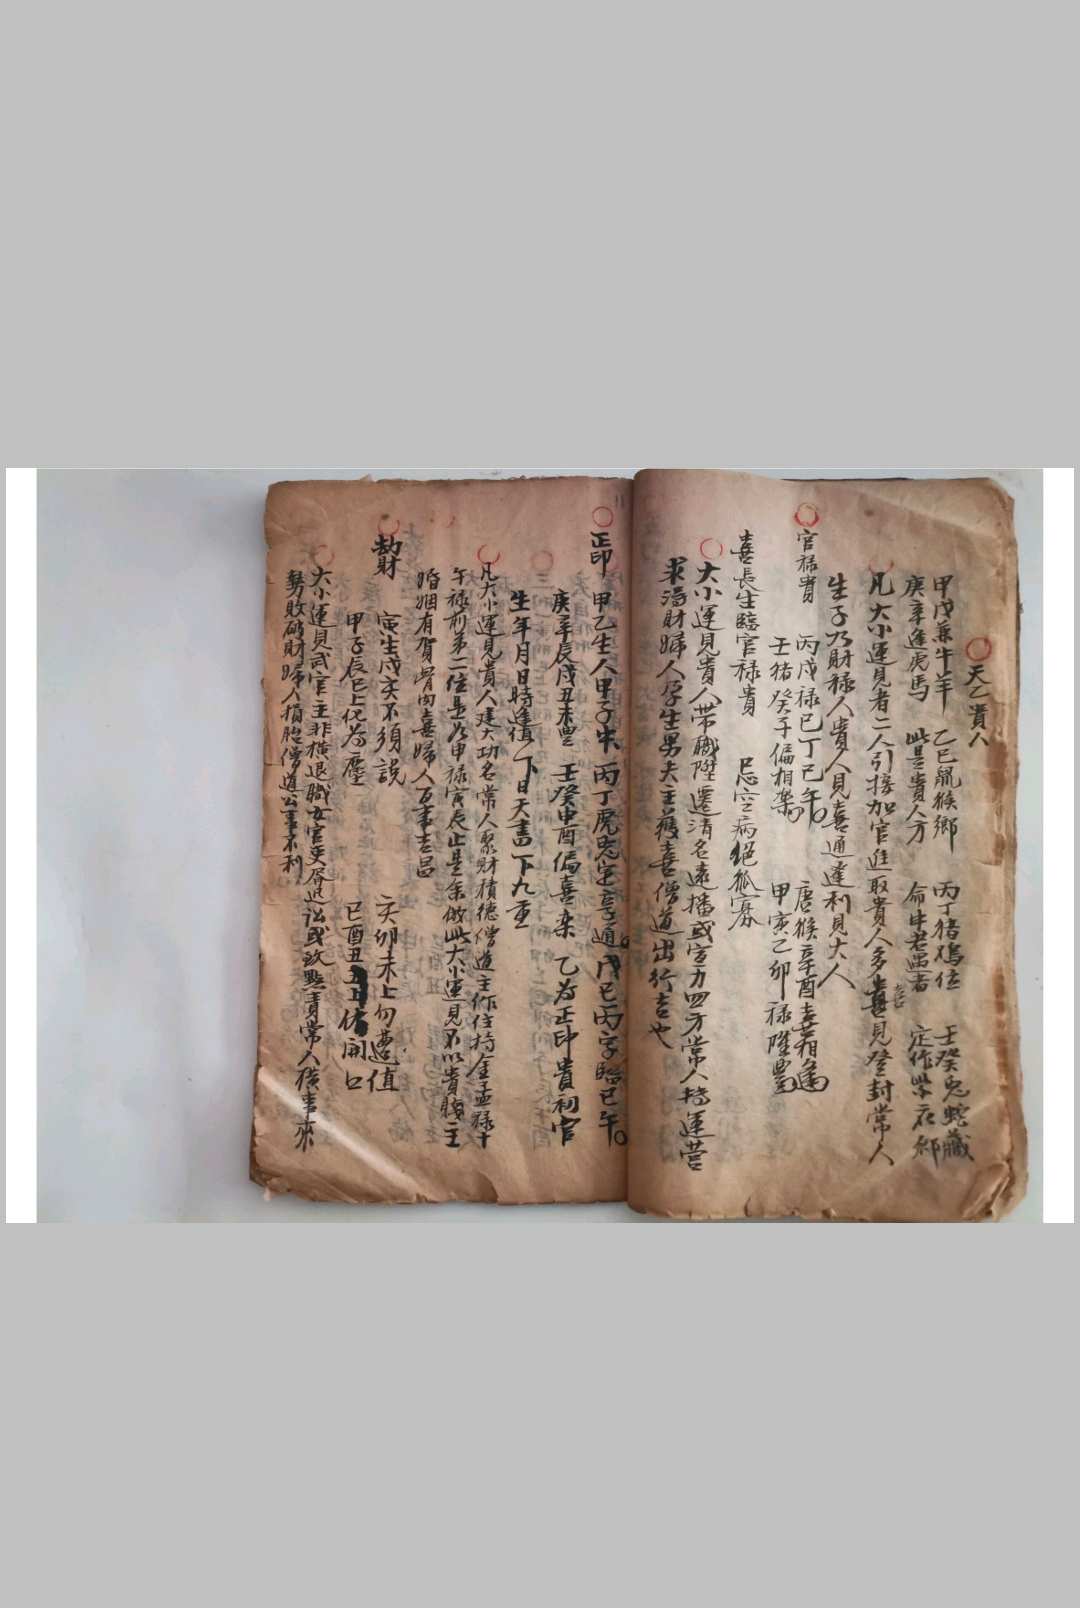 天乙貴人
甲戊兼牛羊 乙己鼠猴鄉 丙丁猪鷄位 壬癸兔蛇藏
庚辛逢虎馬 此是貴人方 命中若遇者 定作紫衣郷
凡大小運見者二人引接加官進取貴人多喜見登封常人
生子乃財禄人貴人見喜通達利見大人
官禄貴 丙戊禄巳丁己午 庚猴辛酉喜相逢
壬猪癸子偏相樂 甲寅乙卯禄隆豐
喜長生臨官禄貴 忌空病絕孤寡
大小運見貴人帶職陞遷清名遠播或宣力四方常人持運营
求淂財婦人孕生男夫主獲喜僧道出行吉也
正印 甲乙生人甲子中 丙丁虎兔定亨通 戊己丙字臨巳午
庚辛辰戌丑未豊 壬癸申酉偏喜亲 乙为正印貴初官
生年月日時逢值 一日天書下九重
凡大小運見貴人建大功名常人聚財積德僧道主作住持金孟禄十
午禄前第二位是为申禄寅辰止是余倣此大小運見不以貴賤主
婚姻有賀胥内喜婦人百事吉昌
劫財 寅生戌亥不須説 亥卯未上勿遭值
甲子辰巳上化为塵 巳酉丑上休開口
大小運見貳官主非横退職女官吏辱退訟或致點責常人横事來
努敗破財婦人損胎僧道公事不利